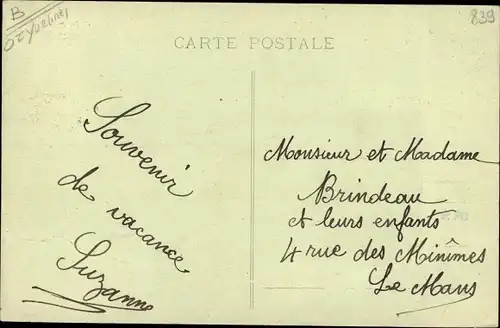 B
839
CARTE POSTALE
Souvenir
de vacance
Suzanne
Monsieur et Madame
Brindeau
et leurs enfants
4 rue des Minîmes
Le Mans